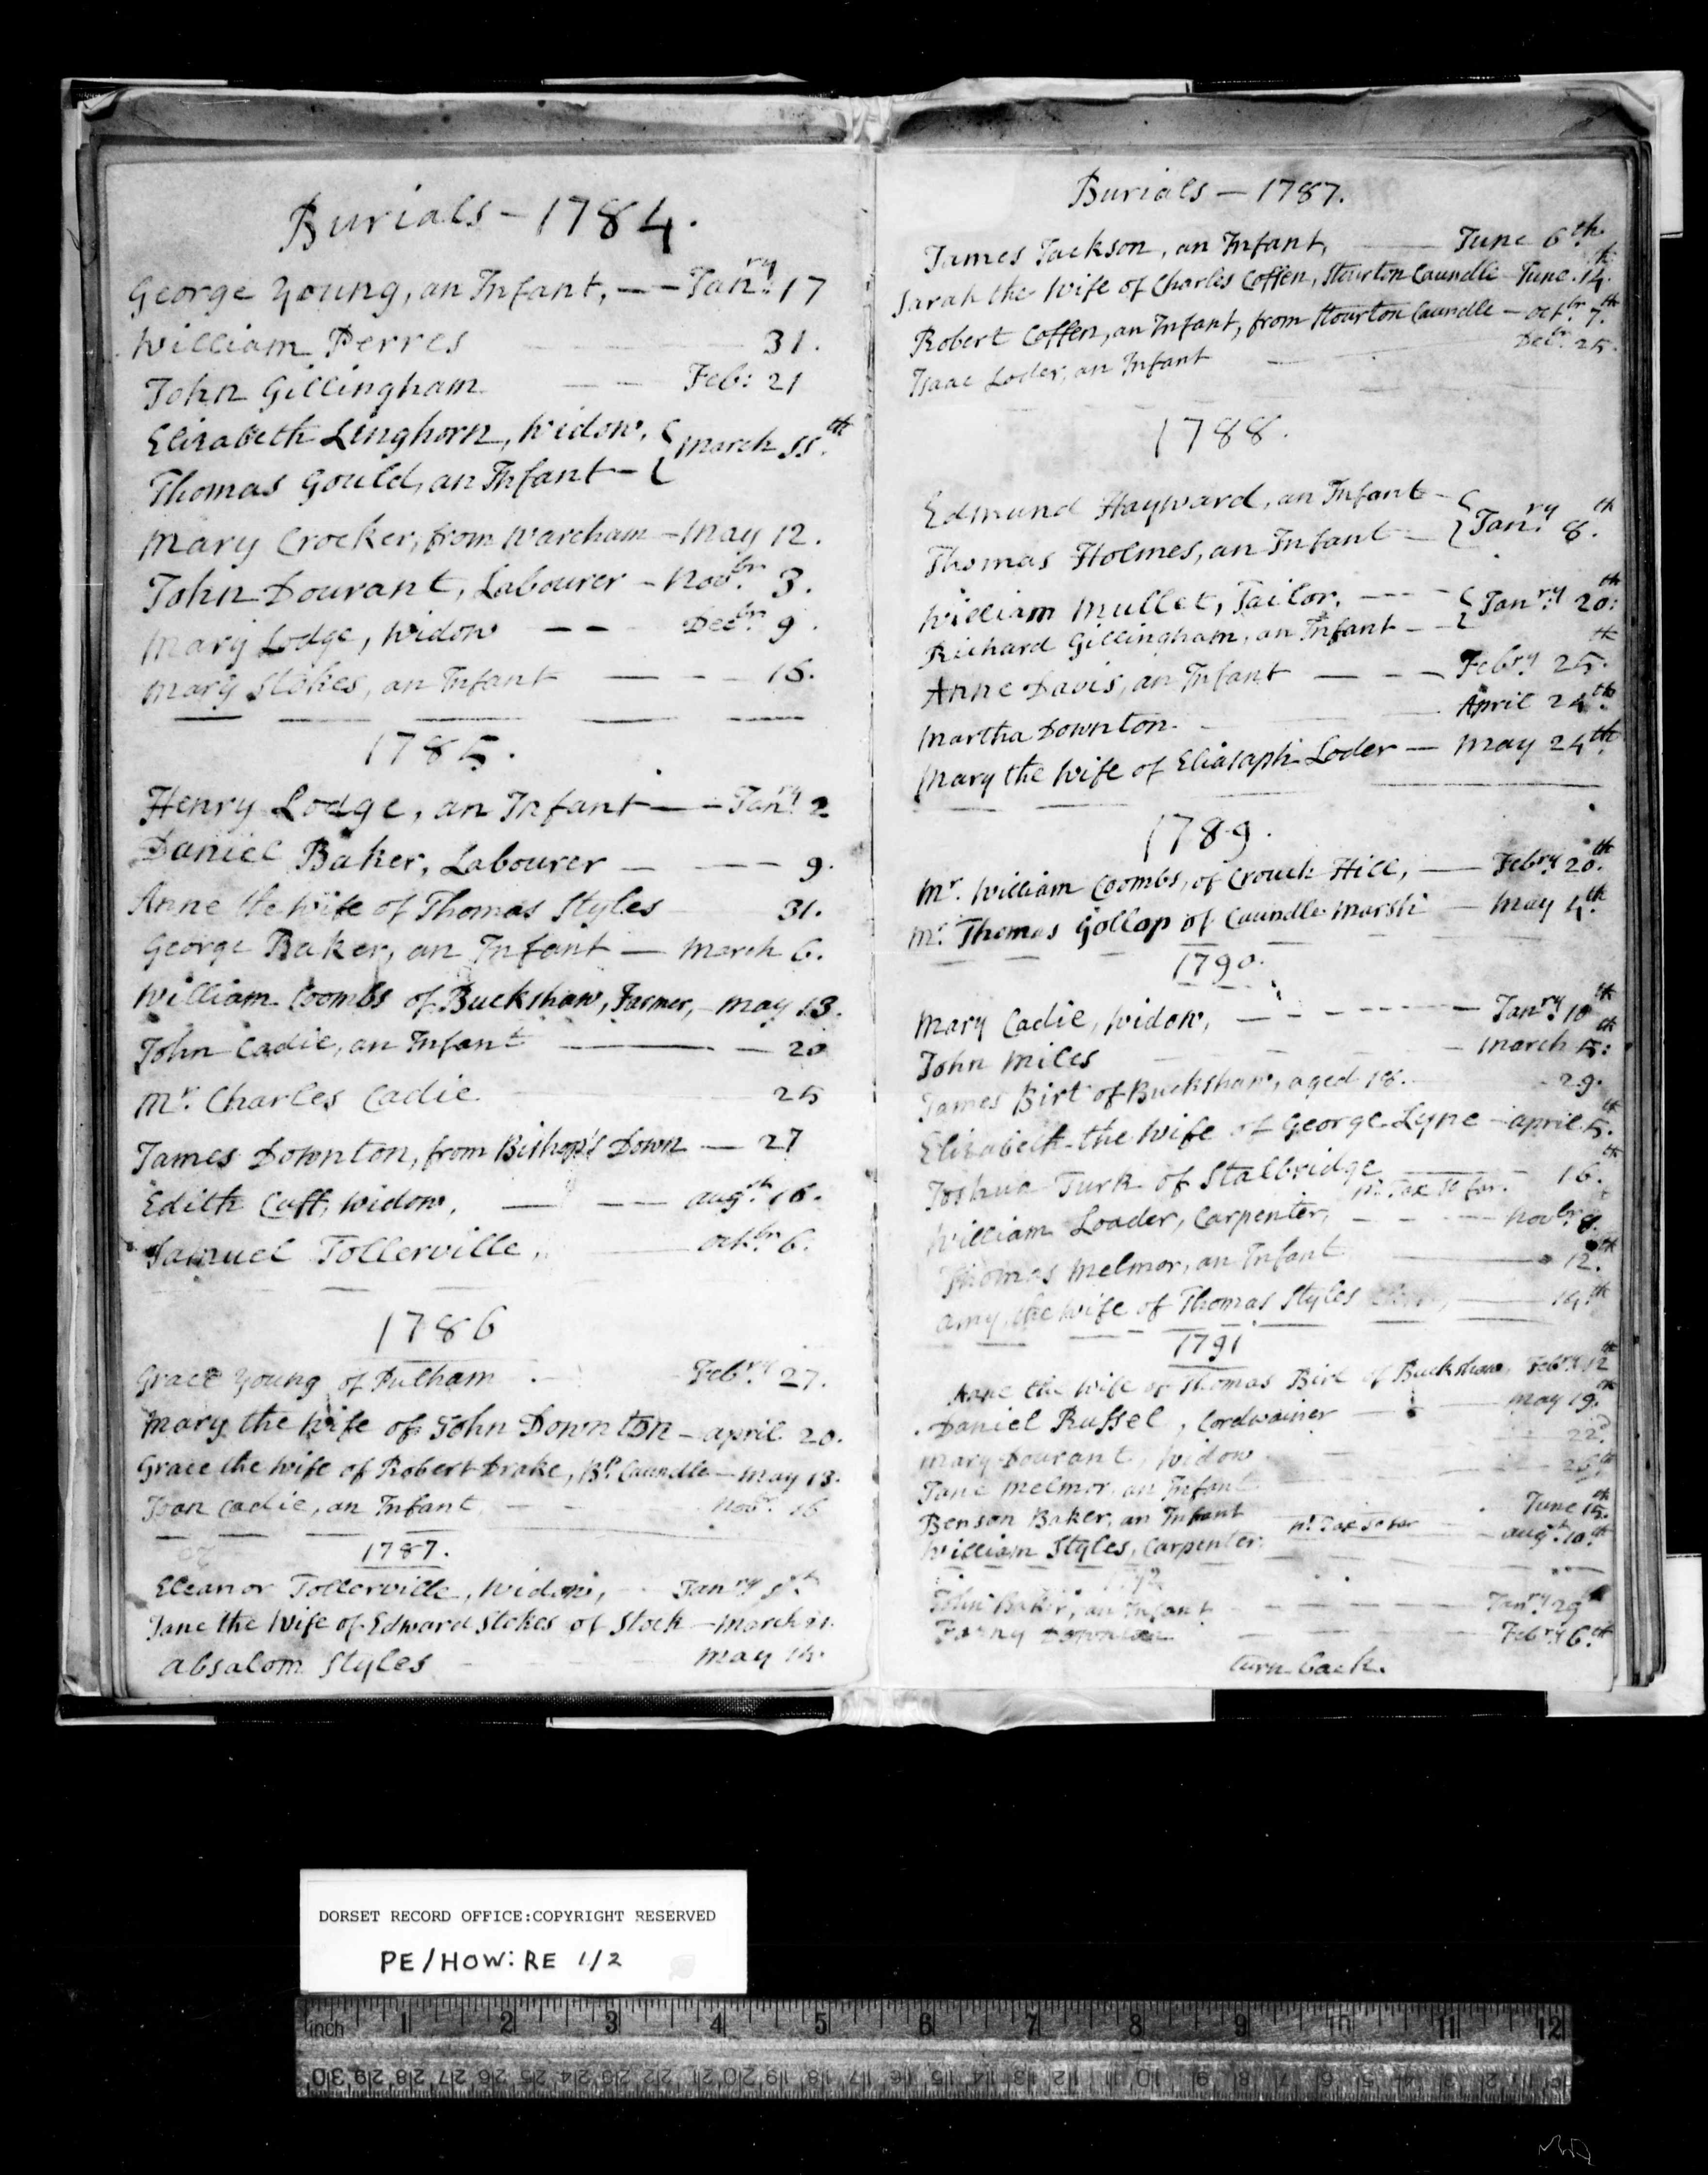 Burials - 1784.
George Young, an Infant, - - Janry. 17
William Perres - - - 31.
John Gillingham - - Feb: 21
Elizabeth Linghorn, Widow, { March 11th.
Thomas Gould, an Infant - {
Mary Crocker, from Wareham - May 12.
John Dourant, Labourer - Novbr. 3.
Mary Lodge, Widow - - Decbr. 9.
Mary Stokes, an Infant - - - 16.
1785.
Henry Lodge, an Infant - - Janry. 2
Daniel Baker, Labourer - - - 9.
Anne the Wife of Thomas Styles 31.
George Baker, an Infant - March 6.
William Coombs of Buckshaw, Farmer, - May 13.
John Cadie, an Infant - - 20
Mr. Charles Cadie 25
James Downton, from Bishop's Down - 27
Edith Cuff, Widow, - - augst. 16.
Samuel Tollerville, octbr. 6.
1786
Grace Young of Pulham - Febry. 27.
Mary the Wife of John Downton - april 20.
Grace the Wife of Robert Drake, Bp. Caundle - May 13.
Joan Cadie, an Infant - - Novr. 16
1787.
Eleanor Tollerville, Widow, Janry 1st.
Jane the Wife of Edward Stokes of Stock - March 21.
Absalom Styles May 14.
Burials - 1787.
James Jackson, an Infant, June 6th.
Sarah the Wife of Charles Coffen, Stourton Caundle - June 14th.
Robert Coffen, an Infant, from Stourton Caundle - octbr. 7th.
Isaac Loder, an Infant - Decbr. 25.
1788.
Edmund Hayward, an Infant - {
Thomas Holmes, an Infant - { Janry. 8th.
William Mullet, Tailor, - - - { Janry. 20th:
Richard Gillingham, an Infant - - {
Anne Davis, an Infant - - - Febry. 25th.
Martha Downton - April 24th.
Mary the Wife of Eliasaph Loder - May 24th.
1789.
Mr. William Coombs, of Crouch Hill, - Febry. 20th.
Mr. Thomas Gollop of Caundle Marsh - May 4th.
1790.
Mary Cadie, Widow, - - - - - - Janry. 10th
John Miles - - - March 5th:
James Birt of Buckshaw, aged 18. - 29.
Elizabeth the Wife of George Lyne - april 5th.
Joshua Turk of Stalbridge - - 16th.
Pd. Tax So far.
William Loader, Carpenter, - - - Novbr 8.
Thomas Melmor, an Infant - 12th.
Amy, the Wife of Thomas Styles - 14th
1791
Anne the Wife of Thomas Birt of Buckshaw, Febry. 12th
Daniel Russel, Cordwainer - May 19th.
Mary Dourant, Widow - 22d.
Jane Melmor, an Infant
Benson Baker, an Infant June 15th.
William Styles, Carpenter. Pd. Tax So far - augst. 10th
1792
John Baker, an Infant - - - - - Janry. 29
Fanny Downton - - - Febry 6th
turn back.
DORSET RECORD OFFICE:COPYRIGHT RESERVED
PE/HOW: RE 1/2
inch 1 2 3 4 5 6 7 8 9 10 11 12
30 29 28 27 26 25 24 23 22 21 20 19 18 17 16 15 14 13 12 11 10 9 8 7 6 5 4 3 2 1